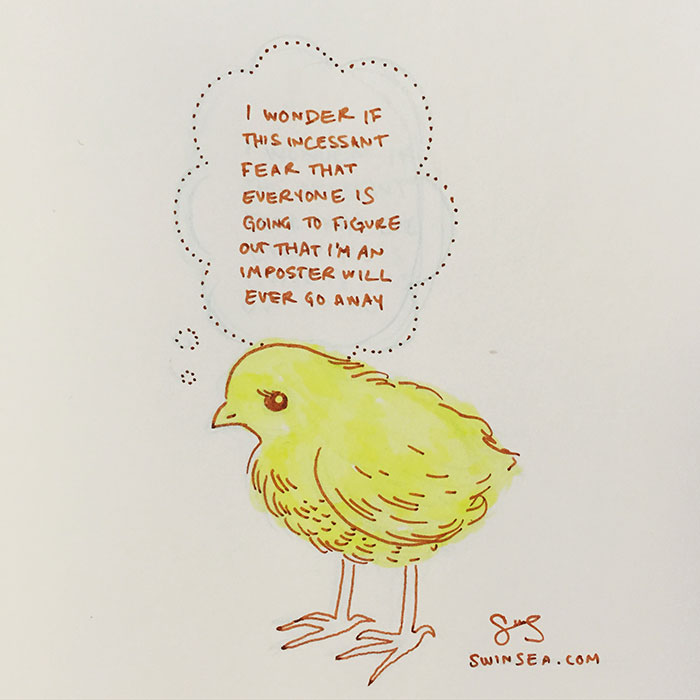 I WONDER IF
THIS INCESSANT
FEAR THAT
EVERYONE IS
GOING TO FIGURE
OUT THAT I'M AN
IMPOSTER WILL
EVER GO AWAY
SWINSEA.COM